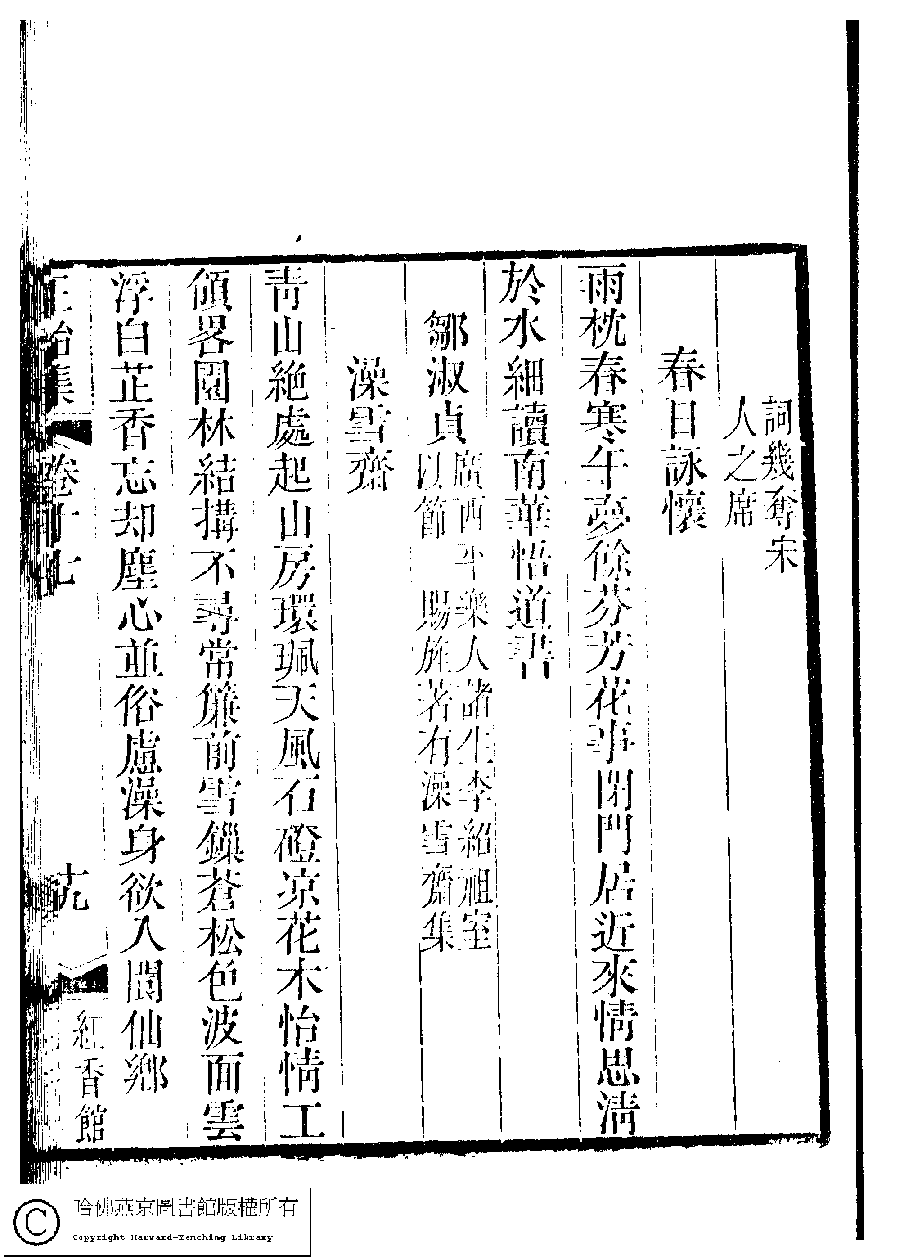 詞幾奪宋
人之席
春日詠懷
雨枕春寒午夢餘芬芳花事閉門居近來情思淸
於水細讀南華悟道書
鄒淑貞廣西平樂人諸生李紹祖室
以節 賜旌著有澡雪齋集
澡雪齋
靑山絶處起山房環珮天風石磴凉花木怡情工
領畧園林結搆不尋常簾前雪鏁蒼松色波面雲
浮白芷香忘却塵心並俗慮澡身欲入閬仙鄕
正始集 卷十七 十九 紅香館
哈佛燕京圖書館版權所有
Copyright Harvard-Yenching Library